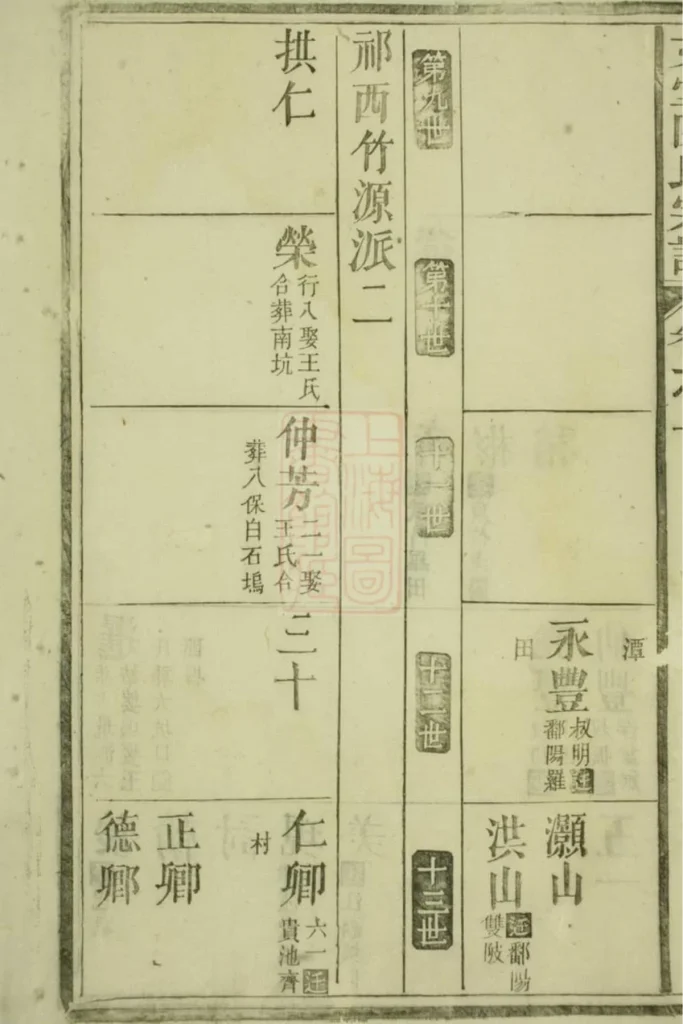 潭
永豐
叔明遷
鄱陽羅
田
灝山
洪山
遷鄱陽
雙陂
第九世
第十世
十一世
十二世
十三世
祁西竹源派二
拱仁
榮
行八娶王氏
合葬南坑
仲芳
二一娶
王氏合
葬八保白石塢
三十
仁卿
六一遷
貴池齊
村
正卿
德卿
上海圖